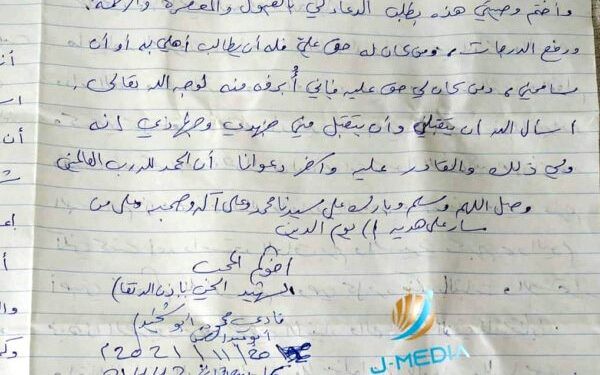 وأختم وصيتي هذه بطلب الدعاء لي بالقبول والمغفرة والرحمة.
ورفع الدرجات، ومن كان له حق علي فله أن يطالب أهلي به أو أن
يسامحني، ومن كان لي حق عليه فإني أُبرئه منه لوجه الله تعالى،
أسأل الله أن يتقبلني وأن يتقبل مني جهدي وجهادي إنه
ولي ذلك والقادر عليه وآخر دعوانا أن الحمد لله رب العالمين
وصل اللهم وسلم وبارك على سيدنا محمد وعلى آله وصحبه وعلى من
سار على هديه إلى يوم الدين
أخوكم المحب
الشهيد الحي بإذن الله تعالى
فادي محمود أبو شخيدم
2021/11/20م
J-MEDIA